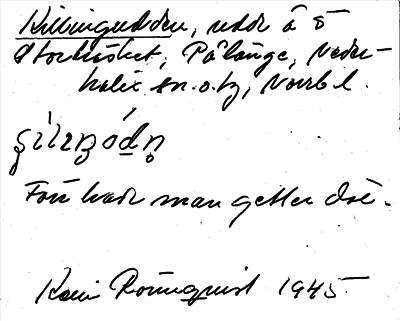 Killingudden, udde å ö
Storhäset, Pålänge, Neder-
kalix sn. o. tg, Norrb l.
Förr hade man getter där.
Karin Rönnquist 1945